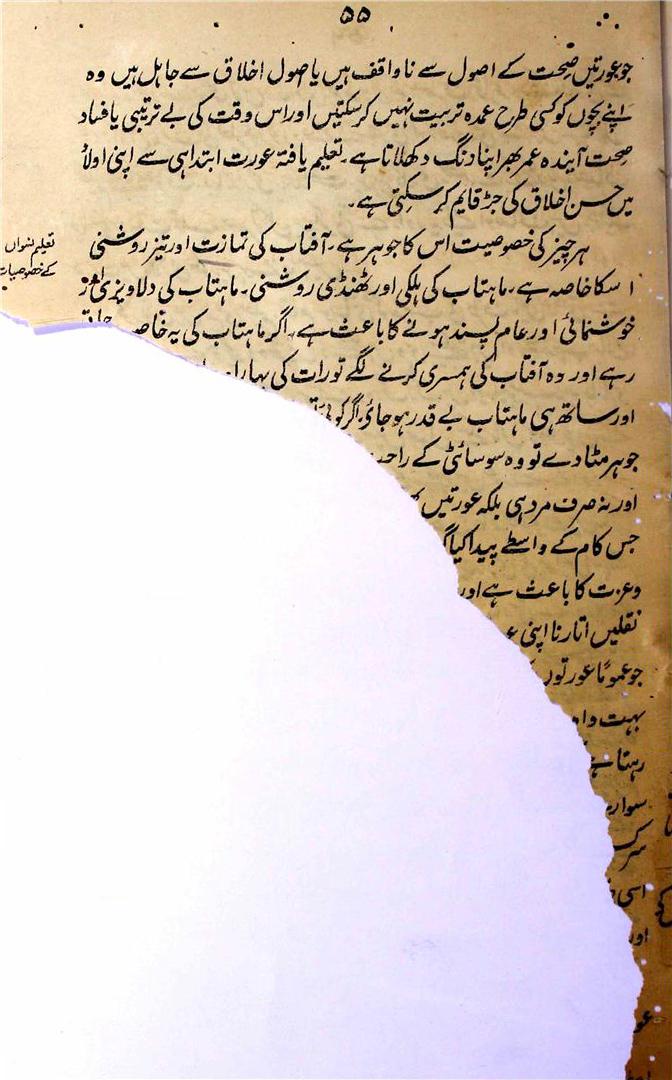 ۵۵
جو عورتیں صحت کے اصول سے ناواقف ہیں یا اصول اخلاق سے جاہل ہیں وہ
اپنے بچوں کو کسی طرح عمدہ تربیت نہیں کر سکتیں اور اس وقت کی بے ترتیبی یا فساد
صحت آیندہ عمر بھر اپنا رنگ دکھلاتا ہے۔ تعلیم یافتہ عورت ابتدا ہی سے اپنی اولاد
میں حسن اخلاق کی جڑ قایم کر سکتی ہے۔
ہر چیز کی خصوصیت اس کا جوہر ہے۔ آفتاب کی تمازت اور تیز روشنی
تعلیم نسواں
کے خصوصیات
اسکا خاصہ ہے۔ ماہتاب کی ہلکی اور ٹھنڈی روشنی۔ ماہتاب کی دلاویزی اور
خوشنمائی اور عام پسند ہونے کا باعث ہے۔ اگر ماہتاب کی یہ خاصہ
رہے اور وہ آفتاب کی ہمسری کرنے لگے تو رات کی بہار
اور ساتھ ہی ماہتاب بے قدر ہو جائے۔ اگر کوئی
جوہر مٹا دے تو وہ سوسائٹی کے
اور نہ صرف مرد ہی بلکہ عورتیں
جس کام کے واسطے پیدا کیا
وعزت کا باعث ہے اور
نقلیں اتارنا اپنی
جو عموماً
بہت
رہتا
اسی